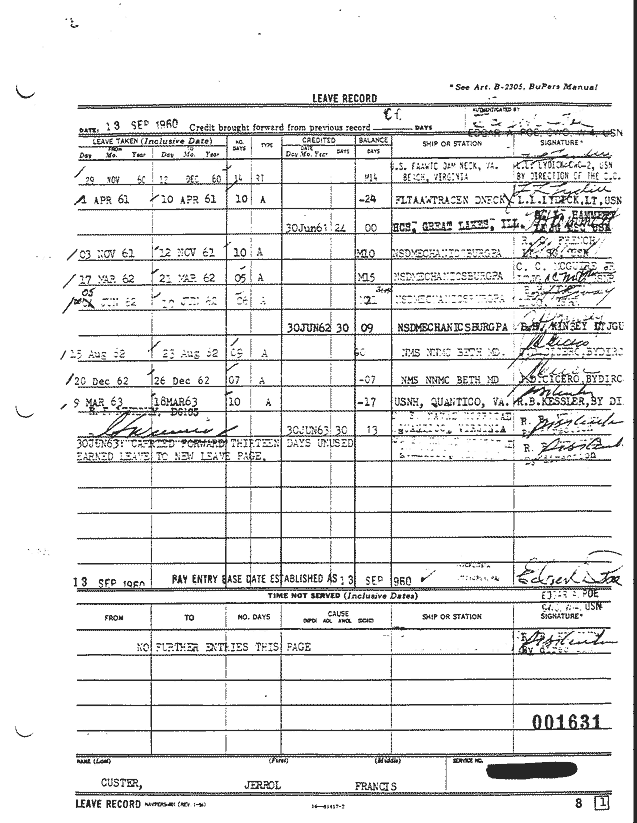 *See Art. B-2305, BuPers Manual
LEAVE RECORD
DATE: 13 SEP 1960 Credit brought forward from previous record DAYS
AUTHENTICATED BY
EDGAR A. POE, CWO, W-4, USN
LEAVE TAKEN (Inclusive Date) NO. DAYS TYPE CREDITED BALANCE SHIP OR STATION SIGNATURE*
FROM TO DATE
Day Mo. Year Day Mo. Year Day Mo. Year DAYS DAYS
29 NOV 60 12 DEC 60 14 RT M14 U.S. FAAWTC DAM NECK, VA. BEACH, VIRGINIA L.L. LYDICK, CWO-2, USN BY DIRECTION OF THE C.O.
1 APR 61 10 APR 61 10 A -24 FLTAAWTRACEN DNECK L.L.LYDICK,LT,USN
30Jun61 24 00 HCS, GREAT LAKES, ILL.
03 NOV 61 12 NOV 61 10 A M10 NSDMECHANICSBURGPA
17 MAR 62 21 MAR 62 05 A M15 NSDMECHANICSBURGPA C. C. MCGUIRE JR
05 JUN 62 JUN 62 A NSDMECHANICSBURGPA
30JUN62 30 09 NSDMECHANICSBURGPA KINSEY LTJG
15 Aug 62 23 Aug 62 09 A NMS NNMC BETH MD. CICERO, BYDIR
20 Dec 62 26 Dec 62 07 A -07 NMS NNMC BETH MD J.D.CICERO,BYDIRC
9 MAR 63 18MAR63 10 A -17 USNH, QUANTICO, VA. R.B.KESSLER,BY DI
30JUN63 30 13 U. S. NAVAL HOSPITAL QUANTICO, VIRGINIA
30JUN63: CARRIED FORWARD THIRTEEN DAYS UNUSED
EARNED LEAVE TO NEW LEAVE PAGE.
By direction
13 SEP 1960 PAY ENTRY BASE DATE ESTABLISHED AS 13 SEP 960
EDGAR A. POE
CWO, W-4, USN
TIME NOT SERVED (Inclusive Dates)
FROM TO NO. DAYS CAUSE SHIP OR STATION SIGNATURE*
NO FURTHER ENTRIES THIS PAGE
By direc
001631
NAME (Last) (First) (Middle) SERVICE NO.
CUSTER, JERROL FRANCIS
LEAVE RECORD NAVPERS-601 (REV. 1-56) 8 1